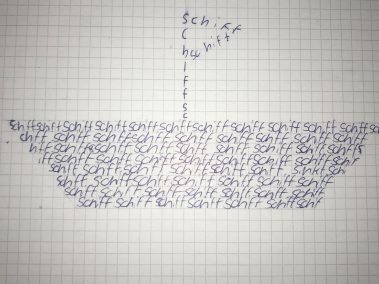 Schiff
c
hschiff
i
f
f
s
c
Schiff Schiff Schiff Schiff Schiff Schiff Schiff Schiff Schiff Schiff Schiff Schiff Schiff sc
chiff Schiff Schiff Schiff Schiff Schiff Schiff Schiff Schiff Schiff Schiff Schiff
hiff Schiff Schiff Schiff Schiff Schiff Schiff Schiff Schiff Schiff Schiff Schiffs
iff Schiff Schiff Schiff Schiff Schiff Schiff Schiff Schiff Schiff Schif
Schiff Schiff Schiff Schiff Schiff Schiff Schiff Schiff sinkt Sch
Schiff Schiff Schiff Schiff Schiff Schiff Schiff Schiff Schiff
Schiff Schiff Schiff Schiff Schiff Schiff Schiff Schiff Schif
Schiff Schiff Schiff Schiff Schiff Schiff Schiff Schif